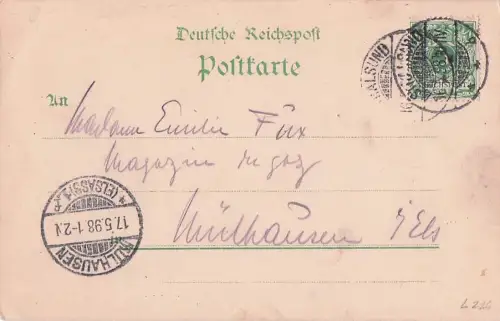 Deutsche Reichspost
Postkarte
STRALSUND
An
Madame Emilie Fux
Magazin
Mülhausen i/Els
MÜLHAUSEN
17.5.98.1-2.N
* (ELSASS) 1 *